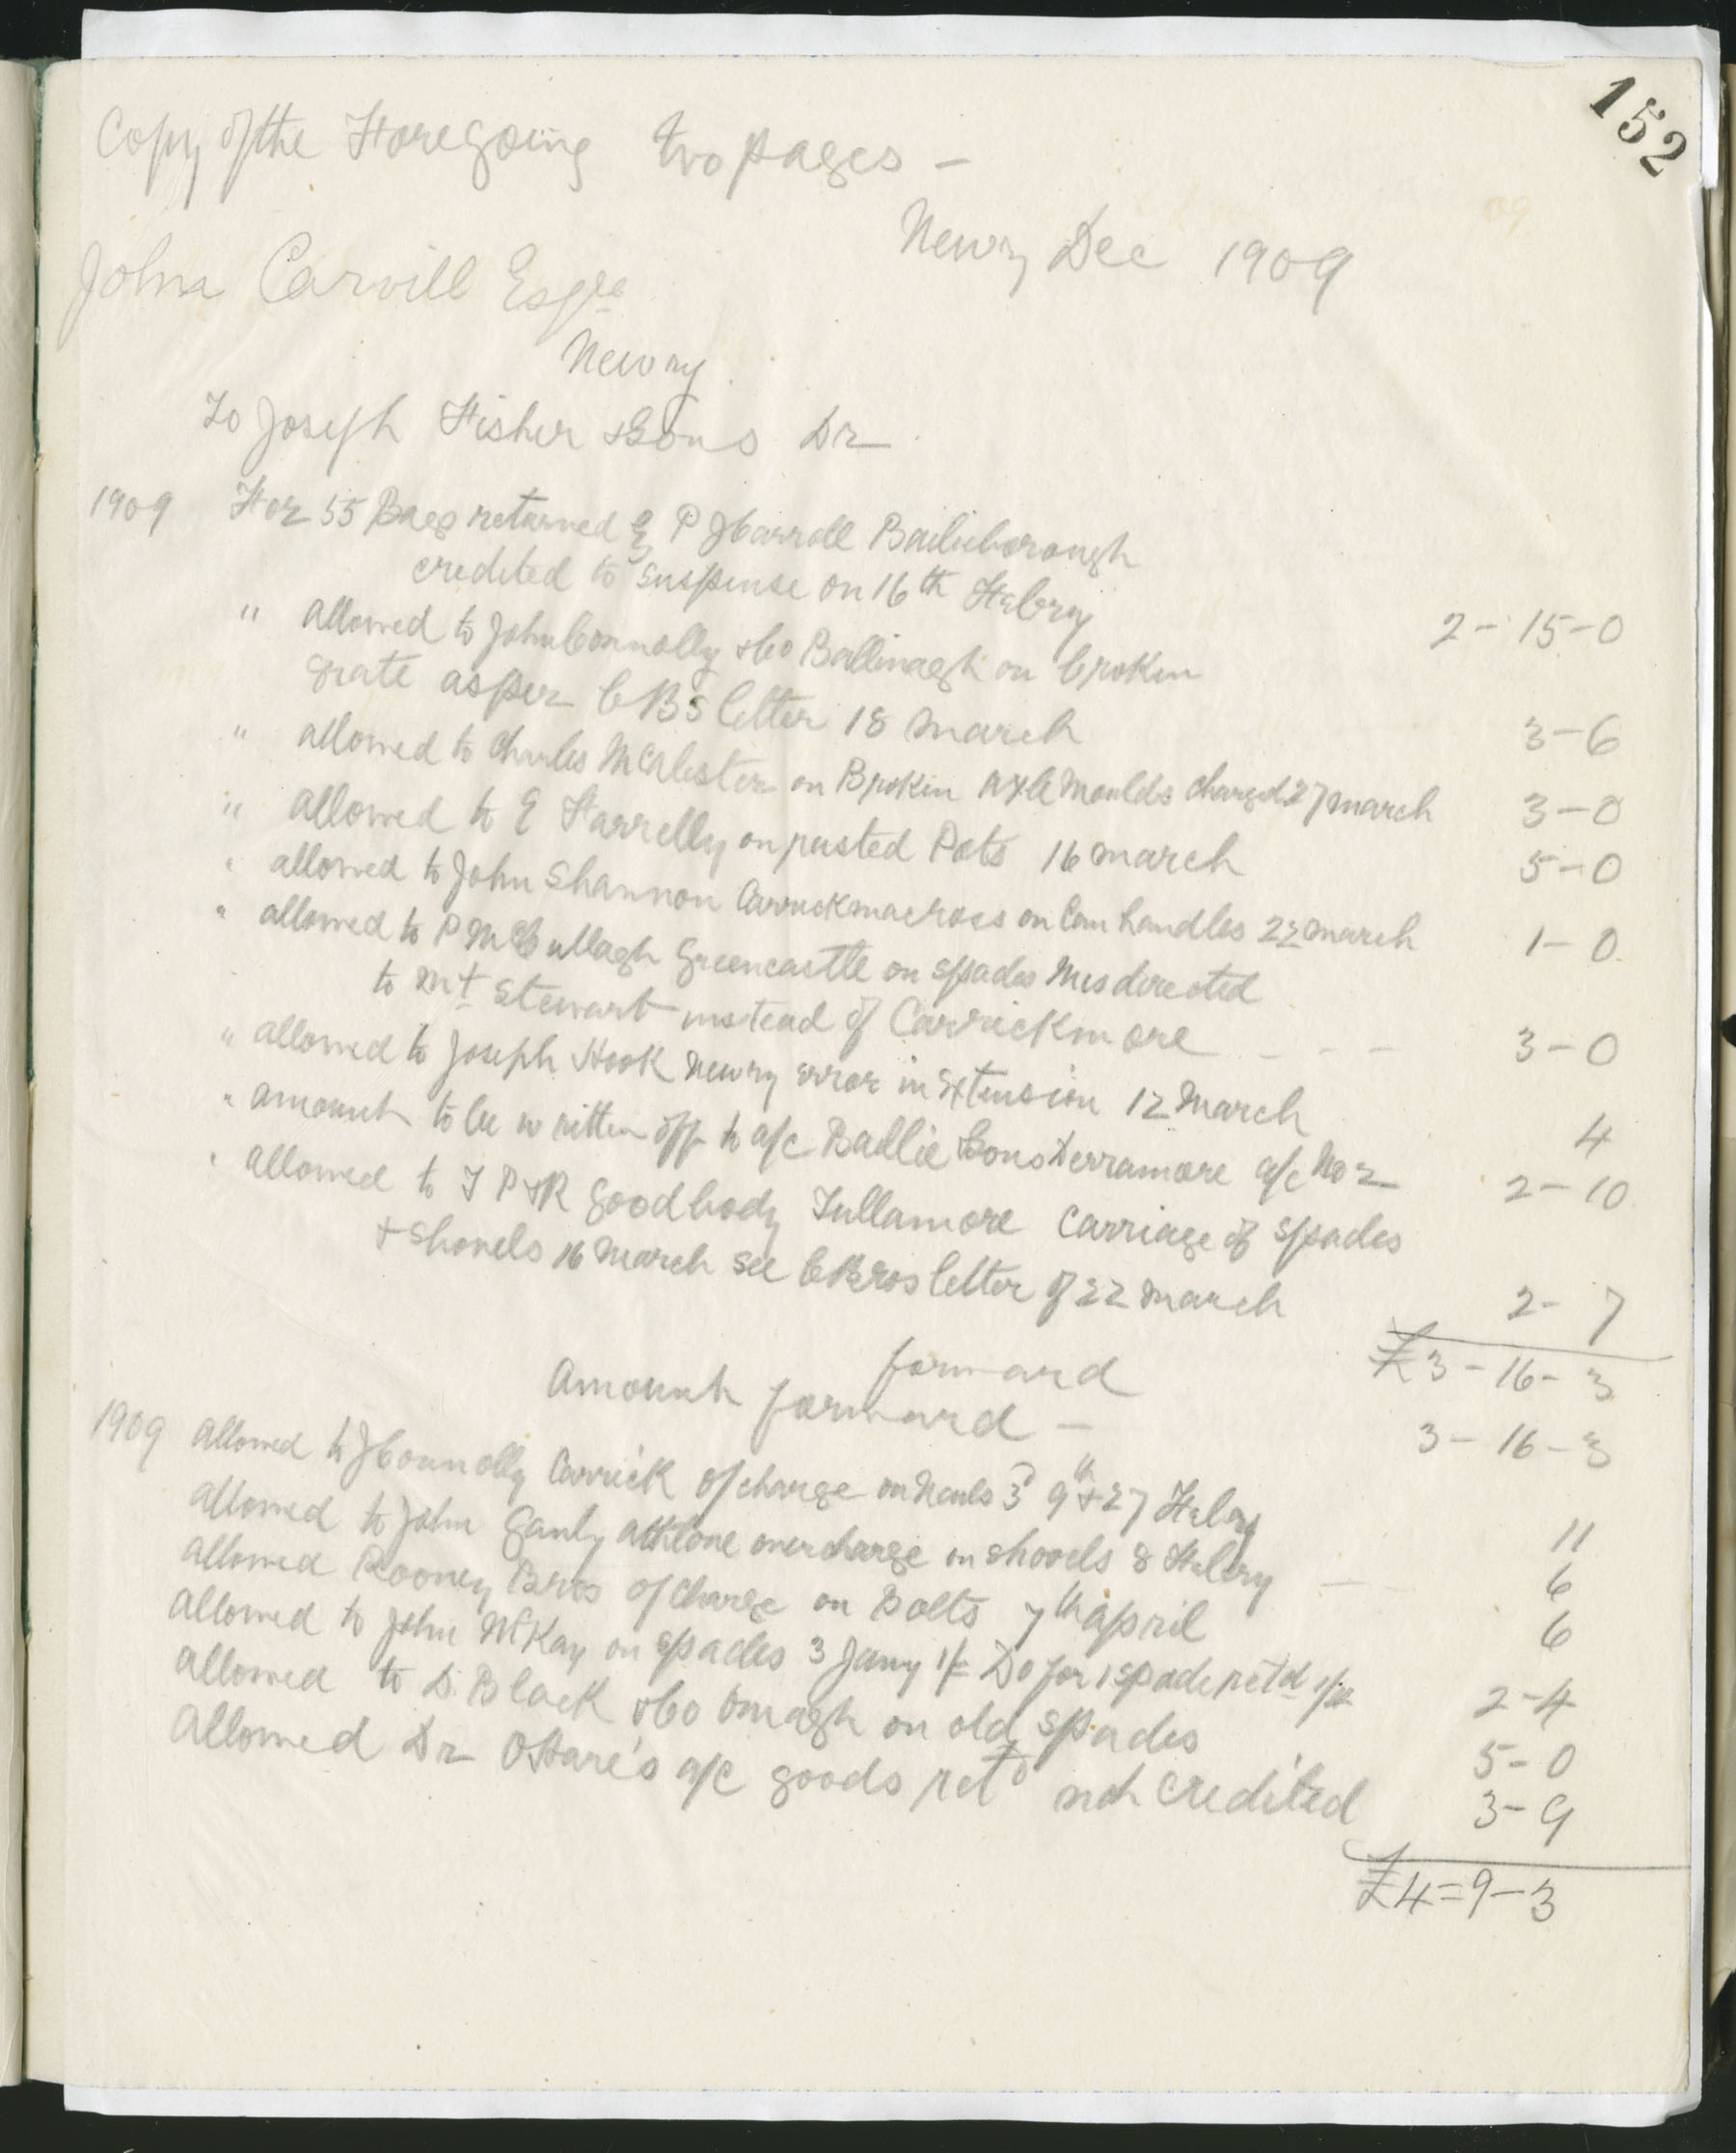 152
Copy of the Foregoing two pages -
Newry Dec 1909
John Carvill Esqre
Newry.
To Joseph Fisher & Sons Dr
1909 For 55 Bags returned by P J Carroll Bailieborough
credited to suspense on 16th Febry 2-15-0
" allowed to John Connolly & Co Ballinagh on broken
grate as per C B's letter 18 March 3-6
" allowed to Charles McAlester on Broken axle moulds charged 27 march 3-0
" allowed to E Farrelly on rusted Pots 16 march 5-0
" allowed to John Shannon Carrickmacross on Can handles 22 march 1-0
" allowed to P McCullagh Greencastle on spades Misdirected
to Mt Stewart instead of Carrickmore - - - 3-0
" allowed to Joseph Hook Newry error in Extension 12 March 4
" amount to be written off to a/c Baillie & Sons Derramore a/c No 2 2-10
" allowed to J P & R Goodbody Tullamore Carriage of spades
& shovels 16 March see C Bros letter of 22 march 2-7
forward £3-16-3
Amount forward - 3-16-3
1909 allowed to J Connolly Carrick o/charge on 3 9th & 27 Febry 11
allowed to John Ganly Athlone overcharge on shovels 8 Febry - 6
allowed Rooney Bros o/charge on Bolts 7th april 6
allowed to John McKay on spades 3 Jany 1/- Do for 1 spade retd 1/4 2-4
allowed to D. Black & Co Omagh on old spades 5-0
Allowed Dr O'Hare's a/c goods retd not credited 3-9
£4=9-3